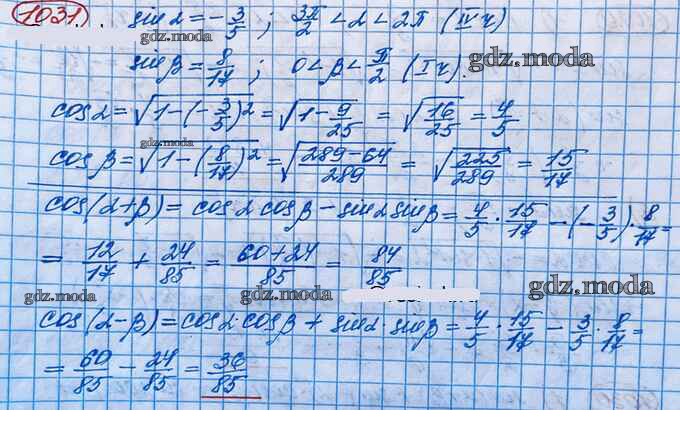 1031) sin α = -3/5 ; 3π/2 < α < 2π (IV ч)
gdz.moda
sin β = 8/17 ; 0 < β < π/2 (I ч).
gdz.moda
cos α = √(1-(-3/5)²) = √(1-9/25) = √(16/25) = 4/5
gdz.moda
cos β = √(1-(8/17)²) = √((289-64)/289) = √(225/289) = 15/17
cos(α+β) = cos α cos β - sin α sin β = 4/5 · 15/17 - (-3/5) · 8/17 =
= 12/17 + 24/85 = (60+24)/85 = 84/85
gdz.moda gdz.moda
gdz.moda
cos(α-β) = cos α · cos β + sin α · sin β = 4/5 · 15/17 - 3/5 · 8/17 =
= 60/85 - 24/85 = 36/85